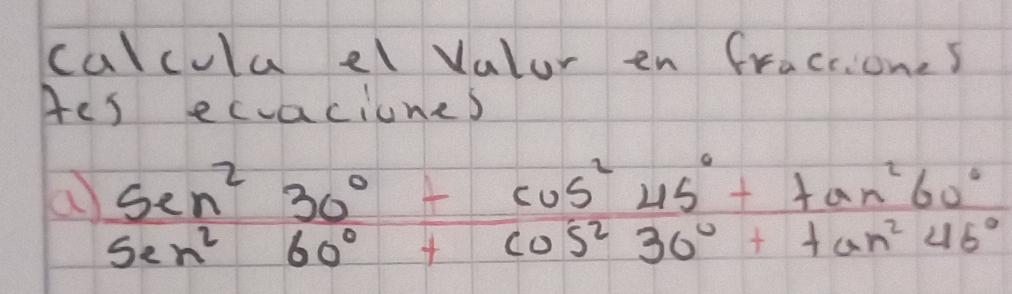 Calcula el Valor en fracciones
tes ecuaciones
a) Sen² 30° + cos² 45° + tan² 60°
Sen² 60° + cos² 30° + tan² 45°